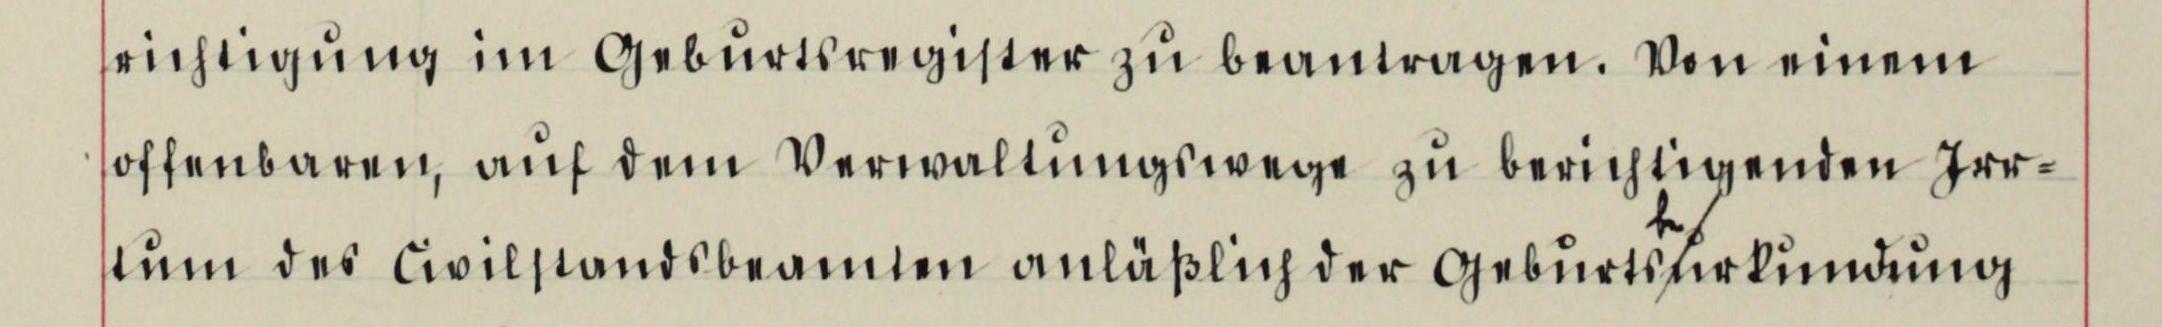 richtigung im Geburtsregister zu beantragen. Von einem
offenbaren, auf dem Verwaltungswege zu berichtigenden Irr-
tum des Civilstandsbeamten anläßlich der Geburtsbeurkundung